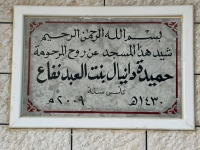 بسم الله الرحمن الرحيم
شيد هذا المسجد عن روح المرحومة
حميدة دانيال بنت العبد نفاع
تأسس سنة
١٤٣٠هـ ٢٠٠٩م